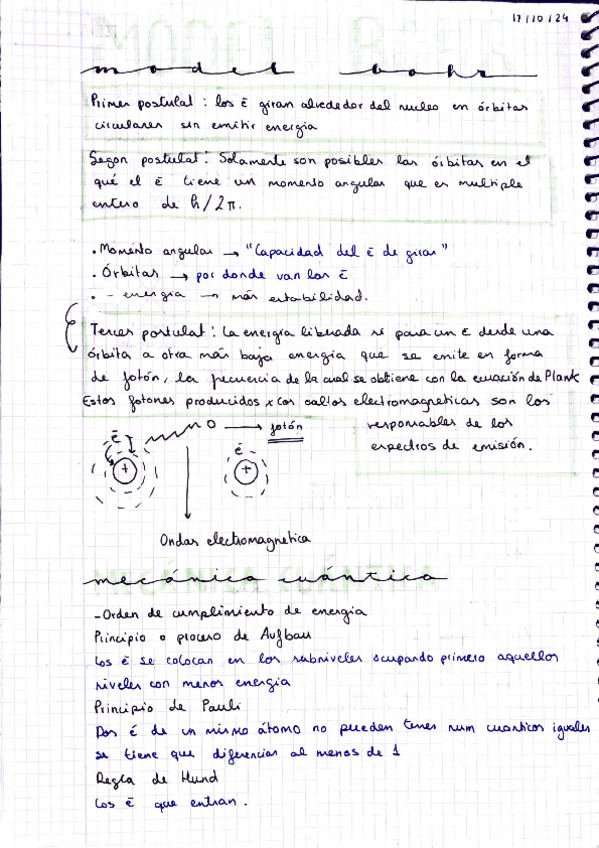 17/10/24
model bohr
Primer postulat: los ē giran alrededor del nucleo en órbitas
circulares sin emitir energia
Segon postulat: Solamente son posibles las óibitas en el
qué el ē tiene un momento angular que es multiple
entero de h/2π.
. Momento angular → "Capacidad del ē de girar"
. Órbitas → por donde van los ē
. - energia → más estabilidad.
Tercer postulat: La energia liberada si pasa un ē desde una
órbita a otra más baja energia que se emite en forma
de fotón, la frecuencia de la cual se obtiene con la ecuación de Plank
Estos fotones producidos x los saltos electromagneticas son los
responsables de los
espectros de emisión.
fotón
ē
ē
+
+
Ondas electromagnetica
mecánica cuántica
-Orden de cumplimiento de energia
Principio o proceso de Aufbau
Los ē se colocan en los subniveles ocupando primero aquellos
niveles con menos energia
Principio de Pauli
Dos ē de un mismo átomo no pueden tener num cuanticos iguales
se tiene que diferenciar al menos de 1
Regla de Hund
Los ē que entran.